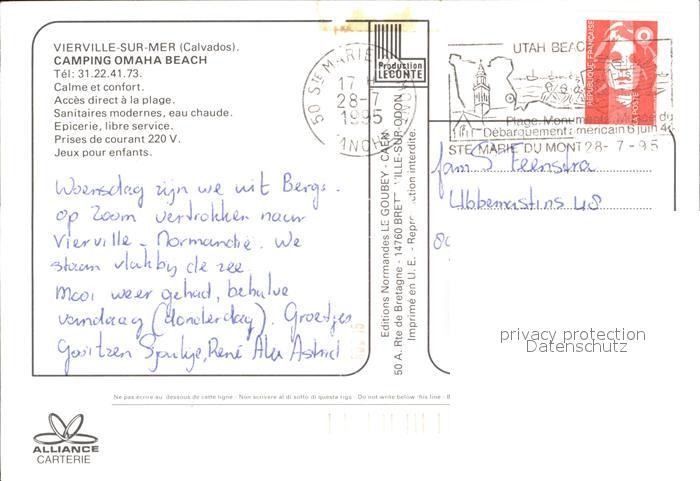 VIERVILLE-SUR-MER (Calvados).
CAMPING OMAHA BEACH
Tél: 31.22.41.73.
Calme et confort.
Accès direct à la plage.
Sanitaires modernes, eau chaude.
Epicerie, libre service.
Prises de courant 220 V.
Jeux pour enfants.
Woensdag zijn we uit Bergs.
op Zoom vertrokken naar
Vierville - Normandië. We
staan vlakby de zee.
Mooi weer gehad, behalve
vandaag (donderdag). Groetjes
Gositzen Sjoukje, René Alex Astrid
Production
LECONTE
50 STE MARIE
17 H
28-7
1995
MANCHE
UTAH BEAC
Plage. Monuments. Musée du
Débarquement américain 6 juin 44
STE MARIE DU MONT 28-7-95
RÉPUBLIQUE FRANÇAISE
LA POSTE
fam S Feenstra
Ubbemastins 48
Editions Normandes LE GOUBEY - CAEN
50 A. Rte de Bretagne - 14760 BRET VILLE-SUR-ODON
Imprimé en U.E. - Repro ction interdite.
privacy protection
Datenschutz
Ne pas écrire au dessous de cette ligne - Non scrivere al di sotto di questa riga - Do not write below this line -
ALLIANCE
CARTERIE